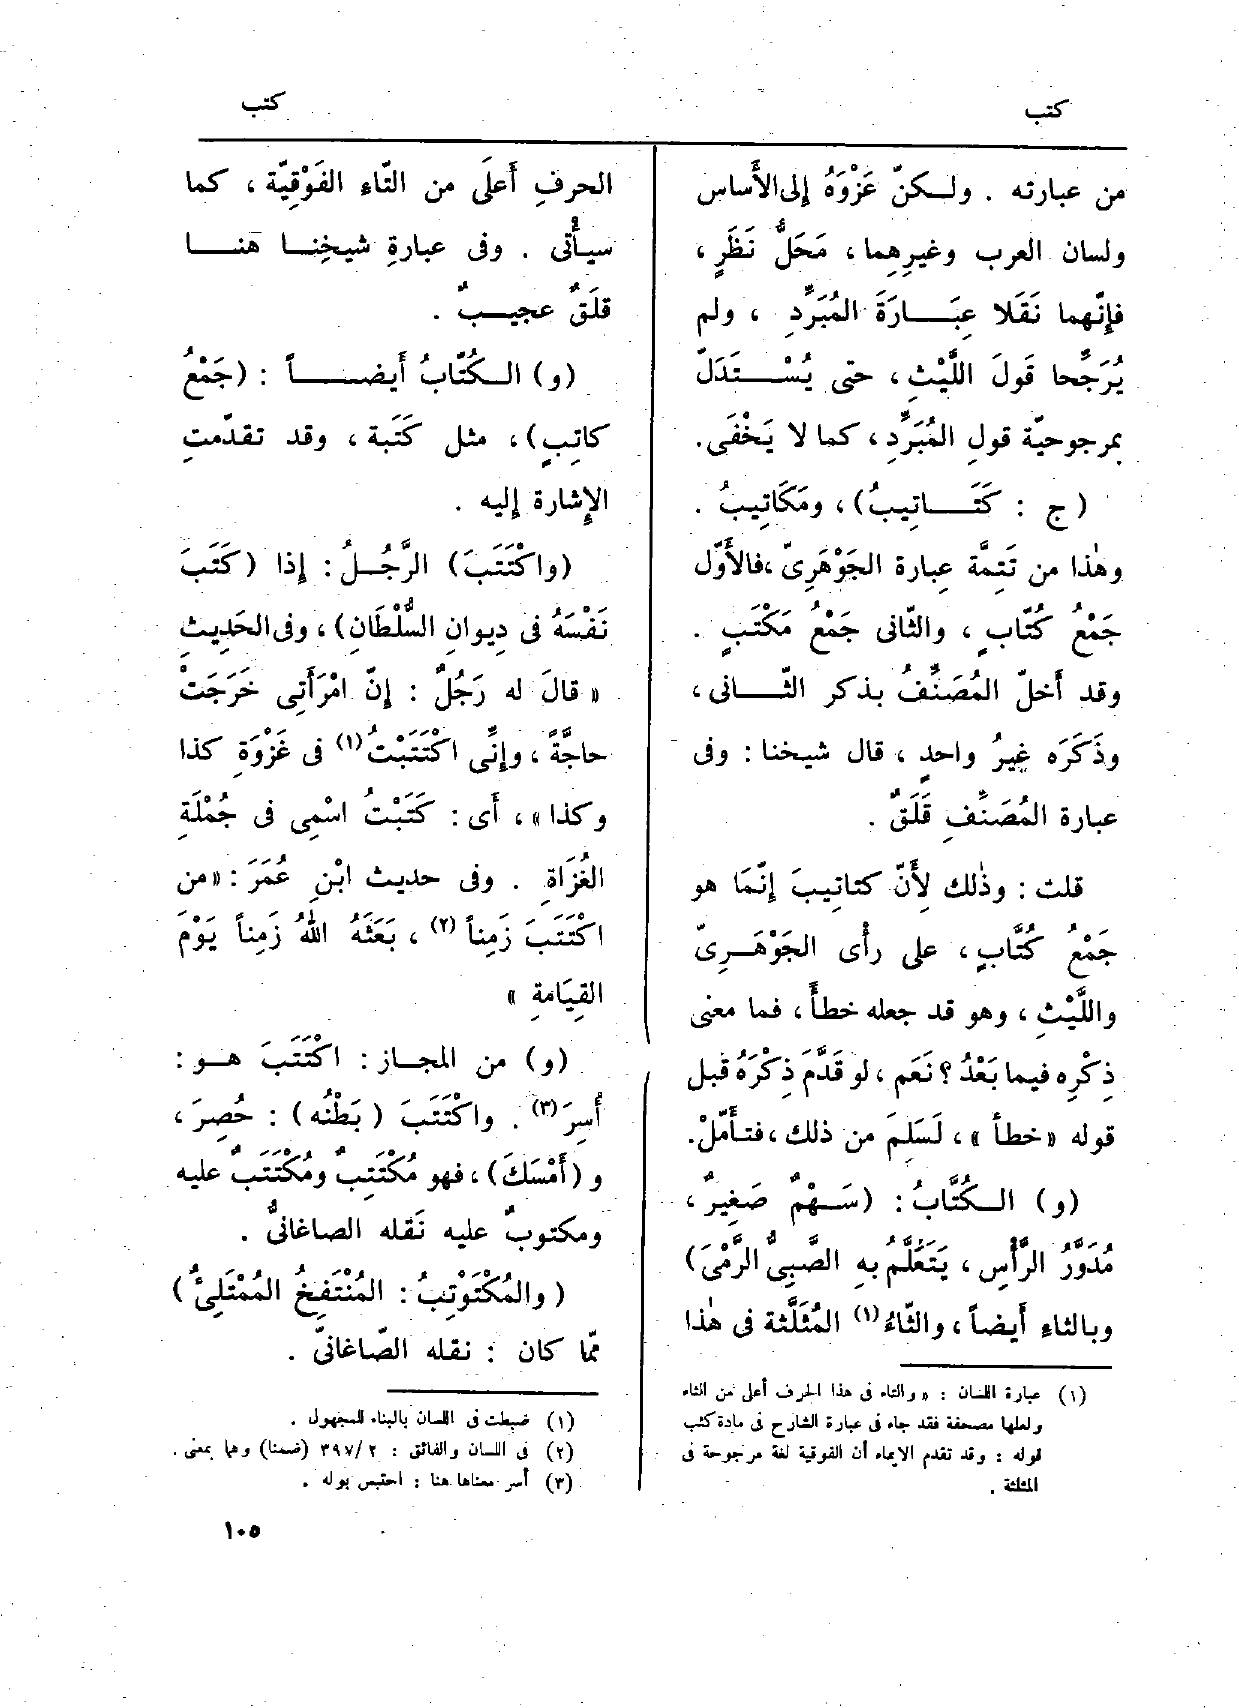 كتب
كتب
من عبارته . ولكنّ عَزْوَهُ إلى الأَساس
ولسان العرب وغيرِهِما ، مَحَلُّ نَظَرٍ ،
فإِنّهما نَقَلا عِبَارَةَ المُبَرِّدِ ، ولم
يُرَجِّحا قَولَ اللَّيْثِ ، حتى يُسْتَدَلّ
بمرجوحيّة قولِ المُبَرِّدِ ، كما لا يَخْفَى .
( ج : كَتَاتِيبُ) ، ومَكَاتِيبُ .
وهٰذا من تَتِمَّة عِبارة الجَوْهَرِىّ ، فالأَوّل
جَمْعُ كُتّابٍ ، والثّانى جَمْعُ مَكْتَبٍ .
وقد أَخلّ المُصَنِّفُ بذكر الثّانى ،
وذَكَرَه غيرُ واحدٍ ، قال شيخنا : وفى
عبارة المُصَنِّفِ قَلَقٌ .
قلت : وذٰلك لِأَنّ كتاتيبَ إِنّمَا هو
جَمْعُ كُتَّابٍ ، على رأْى الجَوْهَرِىّ
واللَّيْثِ ، وهو قد جعله خطأً ، فما معنى
ذِكْرِه فيما بَعْدُ ؟ نَعَم ، لو قَدَّمَ ذِكْرَهُ قبل
قوله « خطأ » ، لَسَلِمَ من ذلك ، فتأَمّلْ .
(و) الكُتَّابُ : (سَهْمٌ صَغِيرٌ ،
مُدَوَّرُ الرَّأْسِ ، يَتَعَلَّمُ بهِ الصَّبِىُّ الرَّمْىَ)
وبالثاءِ أَيضاً ، والثّاءُ (١) المُثَلَّثة فى هٰذا
(١) عبارة اللسان : « والتاء فى هذا الحرف أعلى من الثاء
ولعلها مصحفة فقد جاء فى عبارة الشارح فى مادة كثب
قوله : وقد تقدم الايماء أن الفوقية لغة مرجوحة فى
المثلثة .
الحرفِ أَعلَى من التّاءِ الفَوْقِيّة ، كما
سيأْتى . وفى عبارةِ شيخِنا هنا
قلَقٌ عجيبٌ .
(و) الكُتّابُ أَيضاً : (جَمْعُ
كاتِبٍ) ، مثل كَتَبة ، وقد تقدّمتِ
الإِشارة إليه .
(واكْتَتَبَ) الرَّجُلُ : إذا (كَتَبَ
نَفْسَهُ فى دِيوانِ السُّلْطَانِ) ، وفى الحَدِيثِ
« قالَ له رَجُلٌ : إنّ امْرَأَتِى خَرَجَتْ
حاجَّةً ، وإِنِّى اكْتَتَبْتُ (١) فى غَزْوَةِ كذا
وكذا » ، أَى : كَتَبْتُ اسْمِى فى جُمْلَةِ
الغُزَاةِ . وفى حديث ابْنِ عُمَرَ : « من
اكْتَتَبَ زَمِناً (٢) ، بَعَثَهُ اللهُ زَمِناً يَوْمَ
القِيَامَةِ »
(و) من المجاز : اكْتَتَبَ هو :
أُسِرَ (٣) . واكْتَتَبَ ( بَطْنُه ) : حُصِرَ ،
و (أَمْسَكَ) ، فهو مُكْتَتِبٌ ومُكْتَتَبٌ عليه
ومكتوبٌ عليه نَقله الصاغانىُّ .
( والمُكْتَوْتِبُ : المُنْتَفِخُ المُمْتَلِئُ )
ممّا كان : نقله الصّاغانىّ .
(١) ضبطت فى اللسان بالبناء للمجهول .
(٢) فى اللسان والفائق : ٢ /٣٩٧ (ضمنا) وهما بمعنى .
(٣) أسر معناها هنا : احتبس بوله .
١٠٥